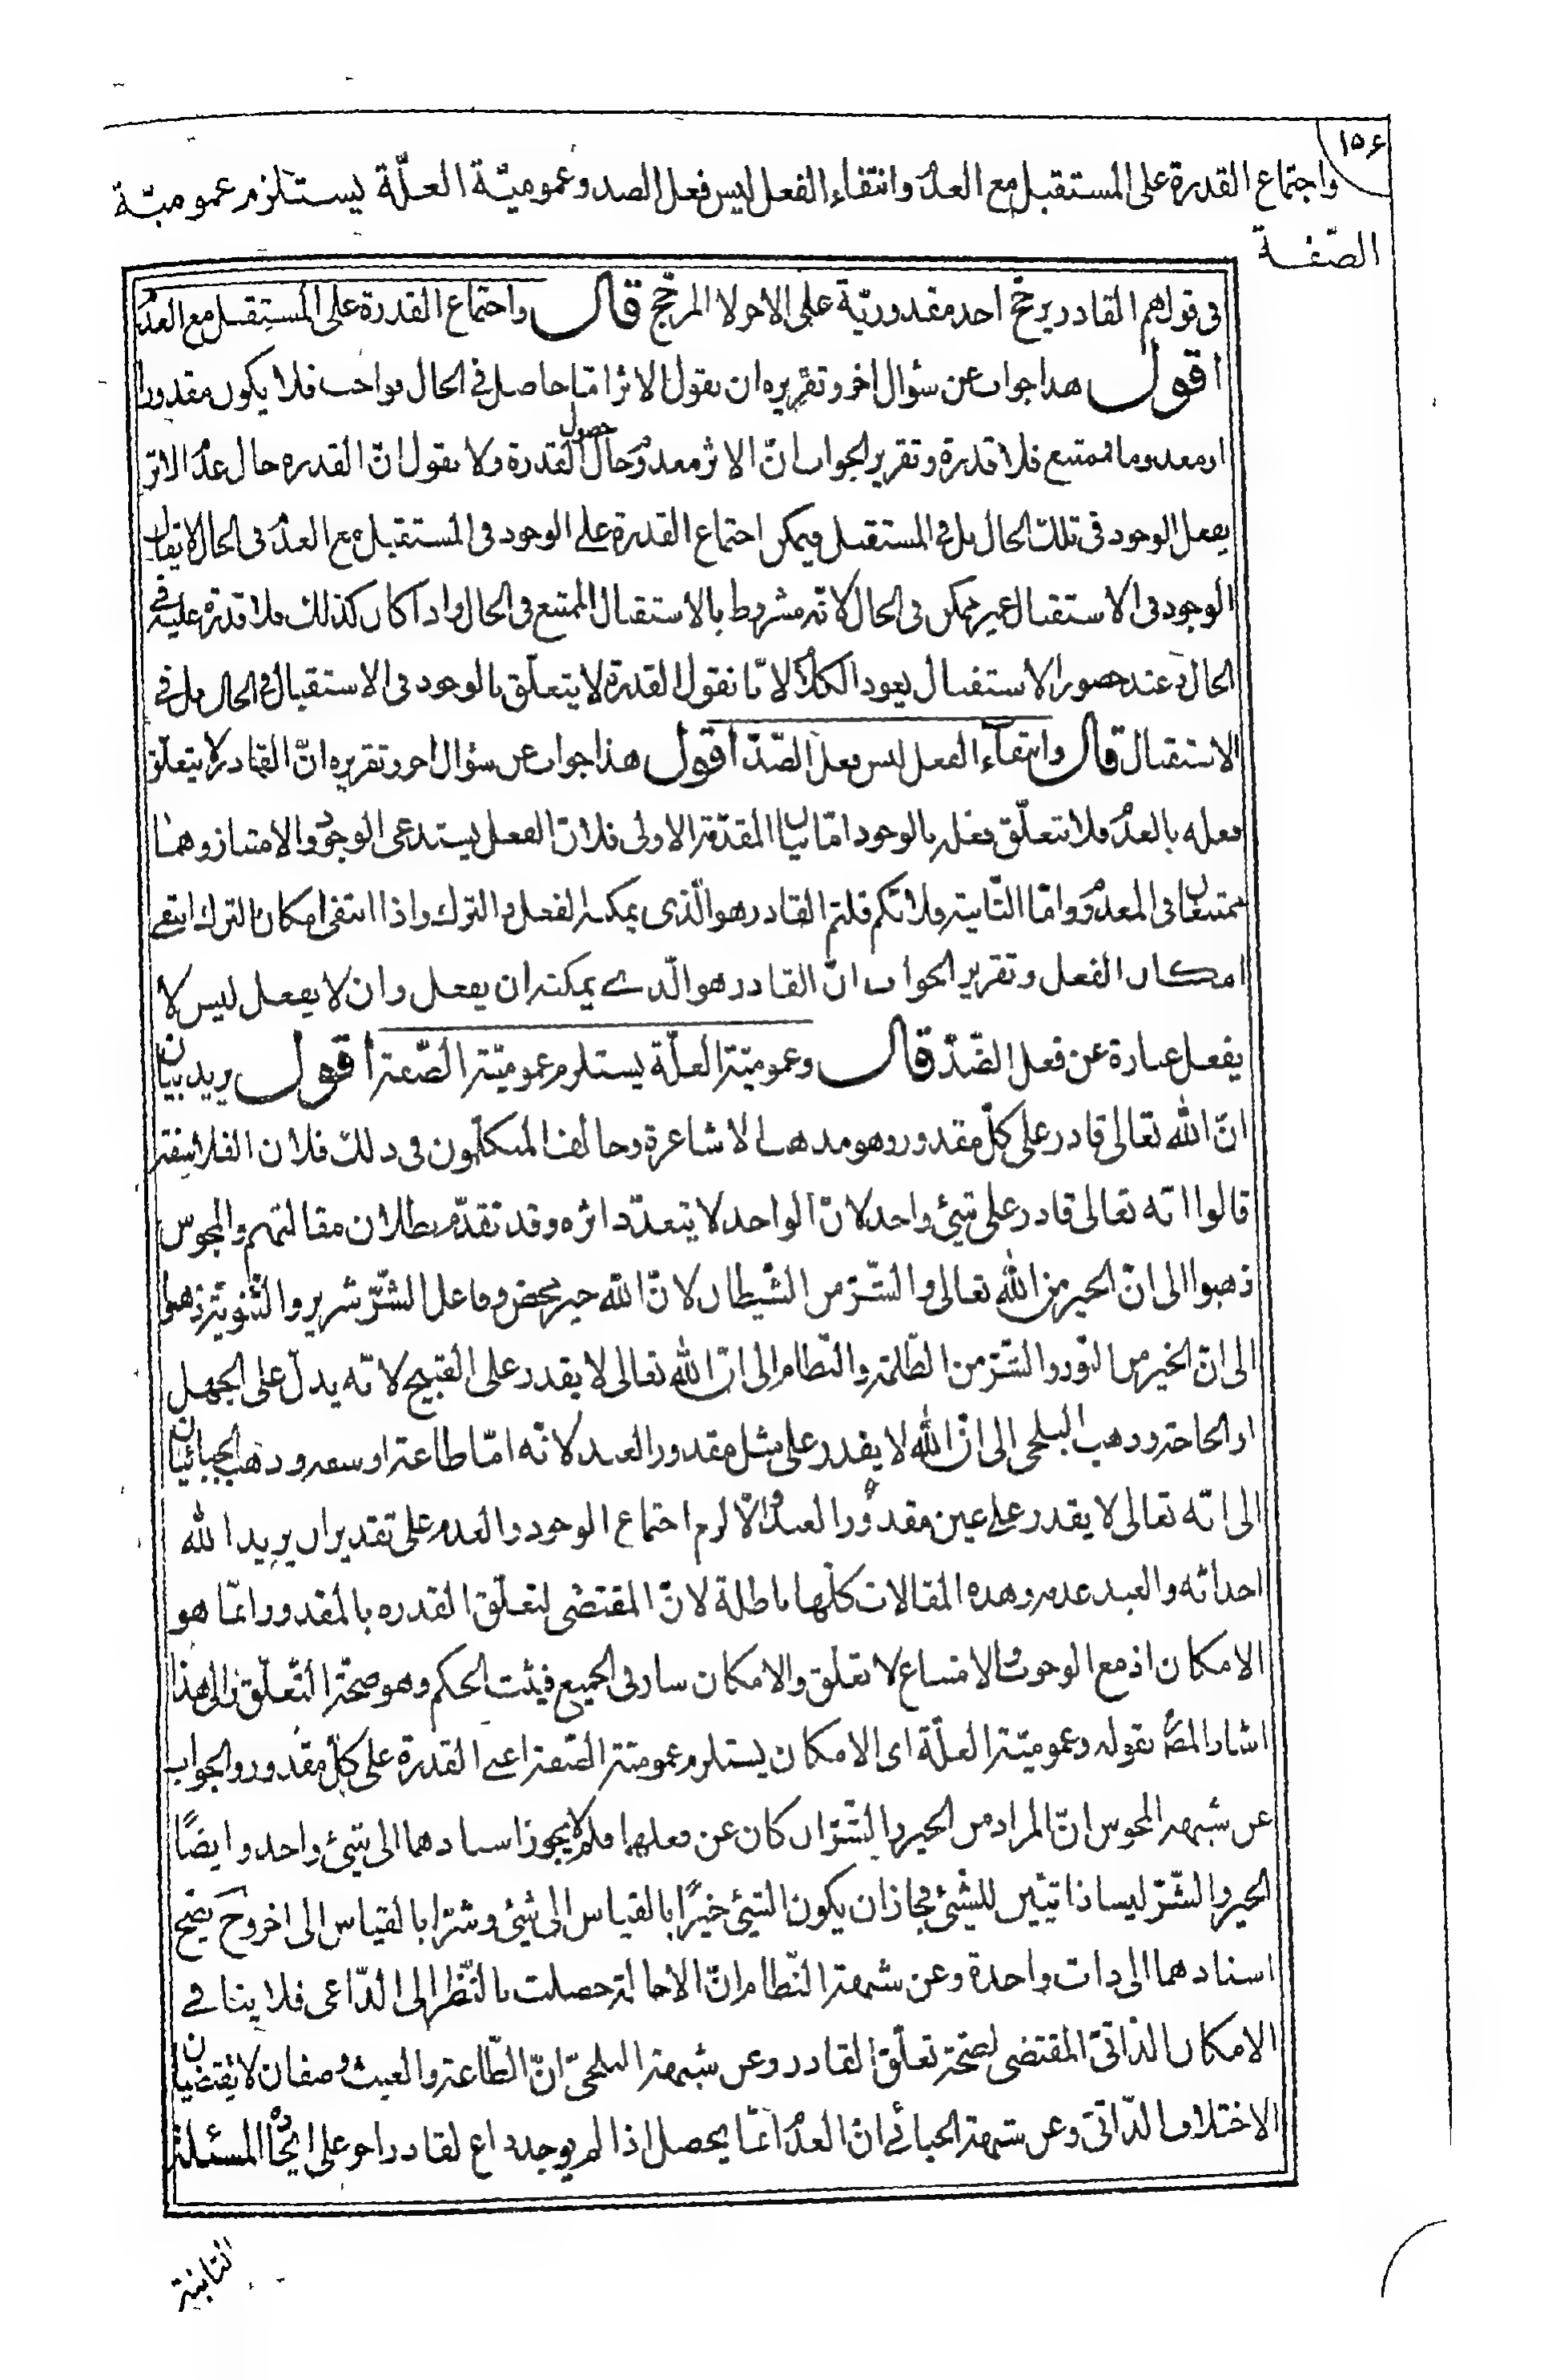 ١٥٦
واجتماع القدرة على المستقبل مع العدم وانتفاء الفعل ليس فعل الصد وعموميّة العلّة يستلزم عموميّة
الصّفة
فى قولهم القادر يرجّح احد مقدوريّة على الاخر لا المرجّح قال واجتماع القدرة على المستقبل مع العدم
اقول هذا جواب عن سؤال اخر وتقريره ان يقول الاثر امّا حاصل فى الحال فواجب فلا يكون مقدورا
او معدوما فممتنع فلا قدرة وتقرير الجواب انّ الاثر معدوم حال حصول القدرة ولا نقول انّ القدرة حال عدم الاثر
يفعل الوجود فى تلك الحال بل فى المستقبل فيمكن اجتماع القدرة على الوجود فى المستقبل مع العدم فى الحال لا يقال
الوجود فى الاستقبال غير ممكن فى الحال لانّه مشروط بالاستقبال الممتنع فى الحال واذا كان كذلك فلا قدرة عليه فى
الحال وعند حصور الاستقبال يعود الكلام لانّا نقول القدرة لا يتعلّق بالوجود فى الاستقبال فى الحال بل فى
الاستقبال قال وانتفاء الفعل ليس فعل الضّدّ اقول هذا جواب عن سؤال اخر وتقريره انّ القادر لا يتعلّق
فعله بالعدم فلا تتعلّق فعله بالوجود امّا بيان المقدّمة الاولى فلانّ الفعل يستدعى الوجود والامتياز وهما
ممتنعان فى المعدوم وامّا الثّانية فلانّكم قلتم القادر هو الّذى يمكنه الفعل والترك واذا انتفى امكان الترك انتفى
امكان الفعل وتقرير الجواب انّ القادر هو الّذى يمكنه ان يفعل وان لا يفعل ليس لا
يفعل عبارة عن فعل الضّدّ قال وعموميّة العلّة يستلزم عموميّة الصّفة اقول يريد بيان
انّ الله تعالى قادر على كلّ مقدور وهو مذهب الاشاعرة وخالف المتكلّمون فى ذلك فلان الفلاسفة
قالوا انّه تعالى قادر على شئ واحد لانّ الواحد لا يتعدّد اثره وقد تقدّم بطلان مقالتهم والمجوس
ذهبوا الى انّ الخير من الله تعالى والشّرّ من الشّيطان لانّ الله خير محض وفاعل الشّرّ شرير والثّنويّة ذهبوا
الى انّ الخير من النّور والشّرّ من الظّلمة والنّظام الى انّ الله تعالى لا يقدر على القبيح لانّه يدلّ على الجهل
او الحاجة وذهب البلخى الى انّ الله لا يقدر على مثل مقدور العبد لانّه امّا طاعة او سفه وذهب الجبائيّان
الى انّه تعالى لا يقدر على عين مقدور العبد والّا لزم اجتماع الوجود والعدم على تقدير ان يريد الله
احداثه والعبد عدمه وهذه المقالات كلّها باطلة لانّ المقتضى لتعلّق القدرة بالمقدور انّما هو
الامكان اذ مع الوجوب والامتناع لا تعلّق والامكان سار فى الجميع فيثبت الحكم وهو صحّة التّعلّق والى هذا
اشار المصّ بقوله وعموميّة العلّة اى الامكان يستلزم عموميّة الصّفة اعنى القدرة على كلّ مقدور والجواب
عن شبهة المجوس انّ المراد من الخير والشّرّ ان كان عن فعلهما فلم لا يجوز اسنادهما الى شئ واحد وايضًا
الخير والشّرّ ليسا ذاتيّين للشّئ فجاز ان يكون الشئ خيرًا بالقياس الى شئ وشرّا بالقياس الى اخر وح يصحّ
اسنادهما الى ذات واحدة وعن شبهة النّظام انّ الاحالة حصلت بالنّظر الى الدّاعى فلا ينافى
الامكان الذاتىّ المقتضى لصحّة تعلّق القادر وعن شبهة البلخىّ انّ الطّاعة والعبث وصفان لا يقتضيان
الاختلاف الذّاتىّ وعن شبهة الجبائى انّ العدم انّما يحصل اذا لم يوجد داع لقادر اخر على ايجاده المسئلة
الثانية